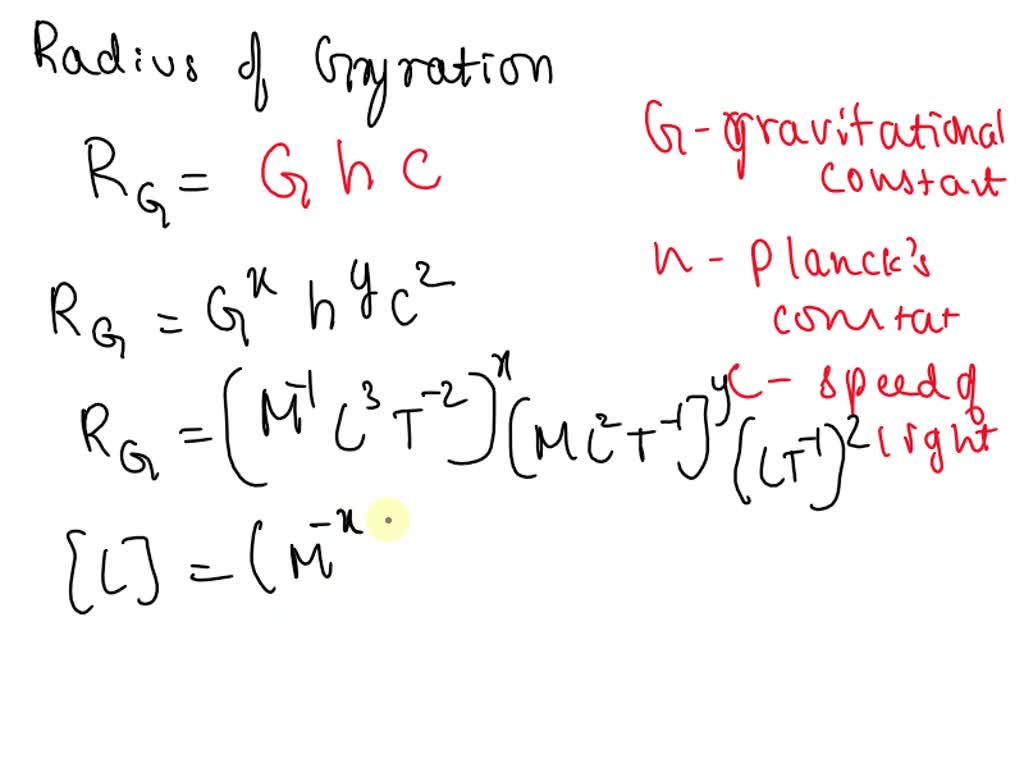 Radius of Gyration
R_G = G h c
G - gravitational
constant
h - Planck's
constat
R_G = G^x h^y c^2
c - speed of
light
R_G = (M^-1 L^3 T^-2)^x (M L^2 T^-1]^y (LT^-1)^2
[L] = (M^-x